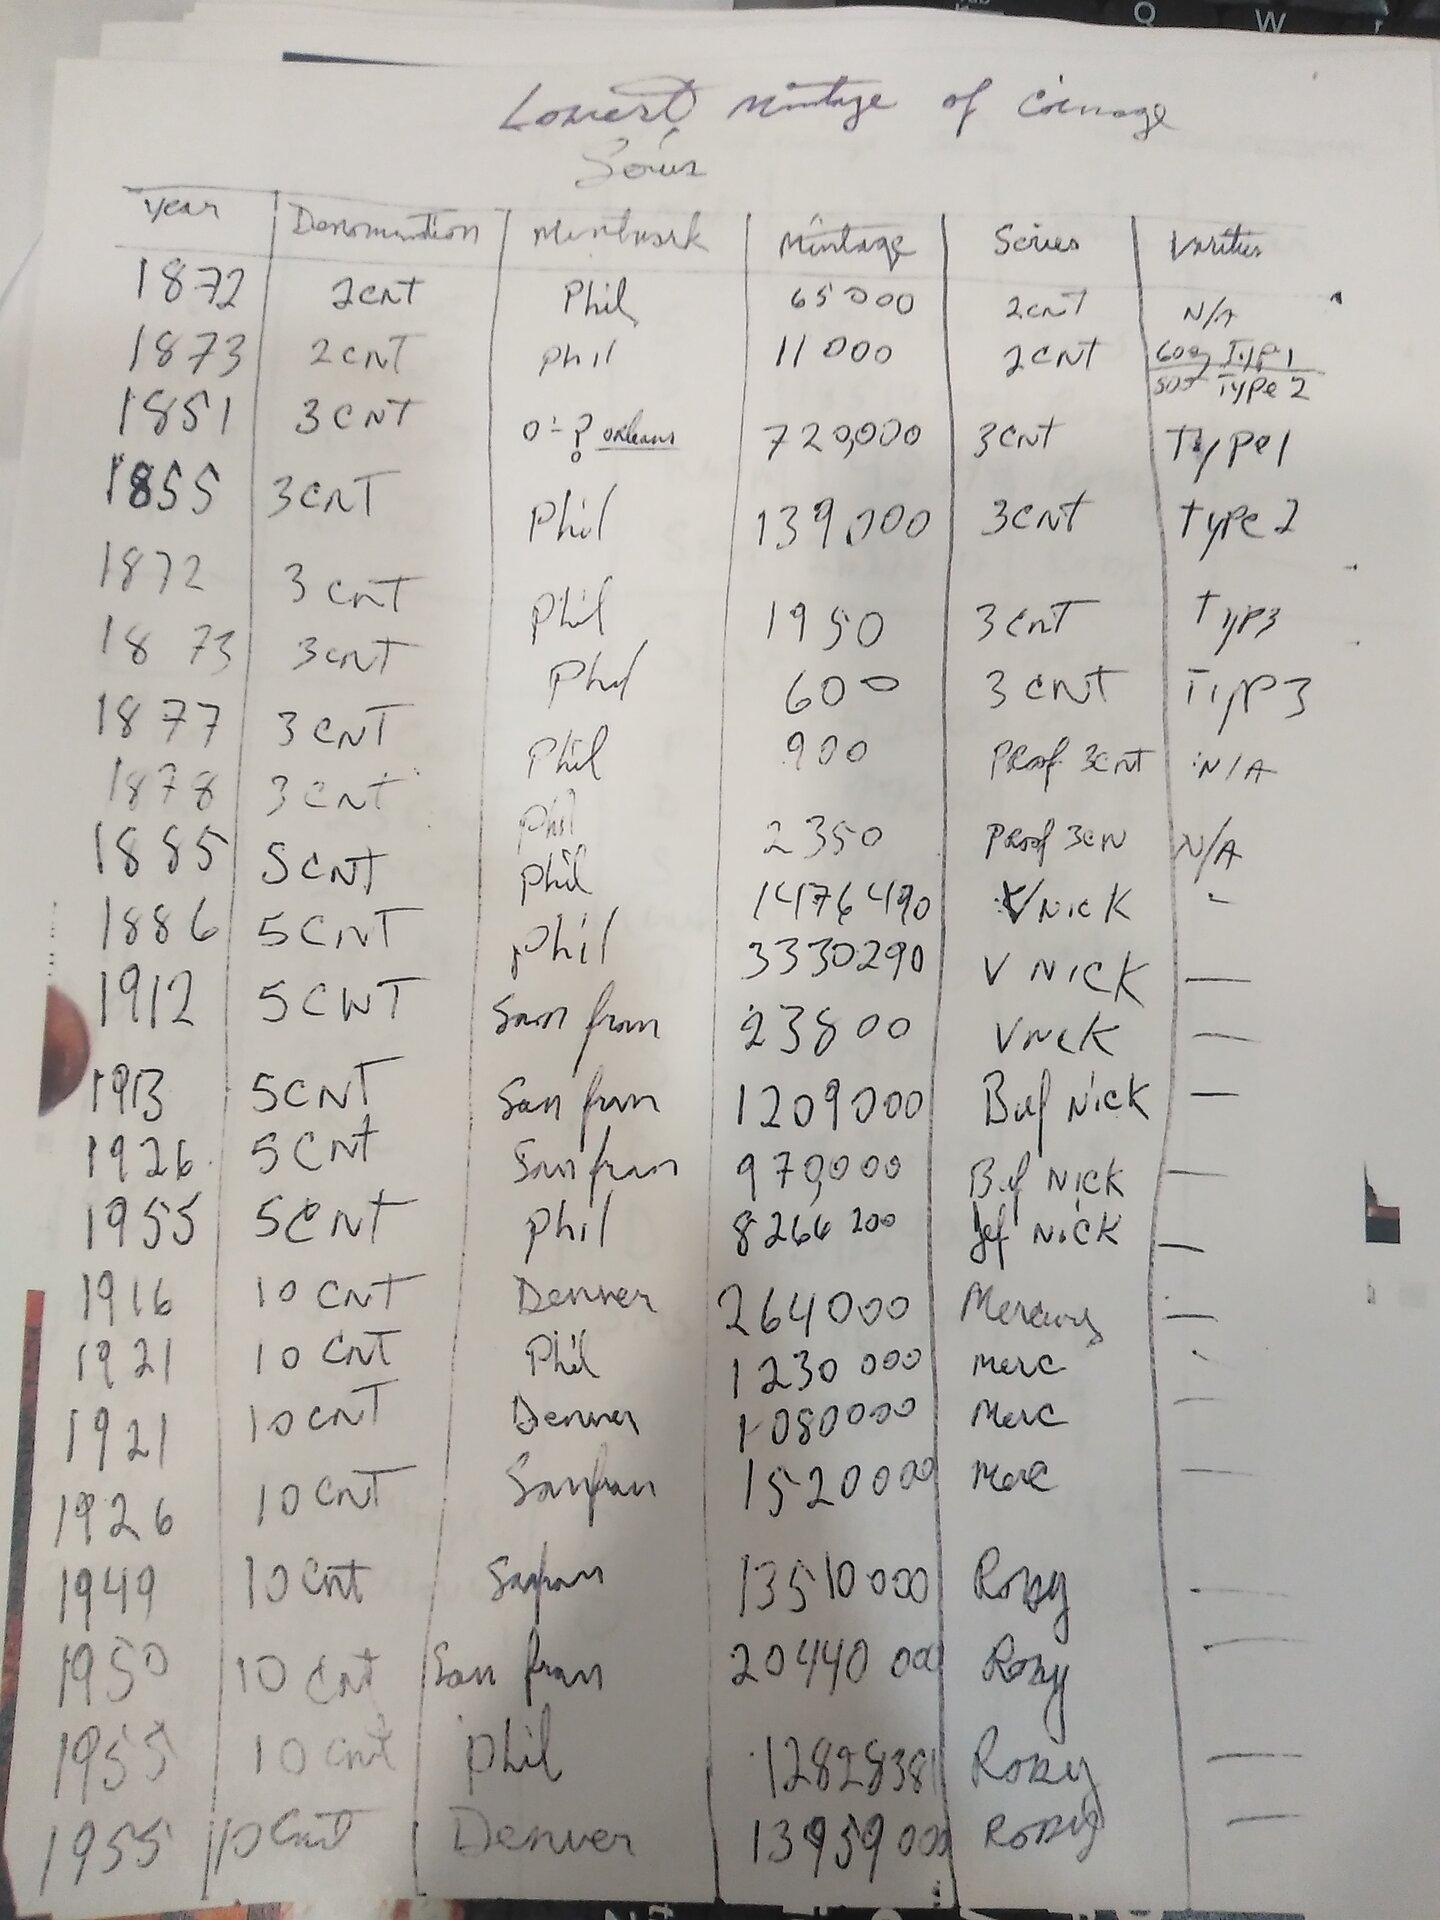 Q W
Lowest Mintage of Coinage
Series
Year Denomination Mintmark Mintage Series Varities
1872 2cnt Phil 65000 2cnt N/A
1873 2CNT Phil 11000 2CNT 600 Type 1
500 Type 2
1851 3CNT O-? orleans 720,000 3cnt Type 1
1855 3CNT Phil 139000 3cnt Type 2
1872 3cnt Phil 1950 3cnt Typ3
1873 3cnt Phil 600 3CNT Typ3
1877 3CNT Phil 900 Proof 3CNT N/A
1878 3CNT Phil 2350 Proof 3CN N/A
1885 5CNT Phil 1476490 V Nick -
1886 5CNT Phil 3330290 V NICK —
1912 5CNT San fran 23800 VNcK —
1913 5CNT San fran 1209000 Buf Nick —
1926 5CNT San fran 970,000 Buf NICK —
1955 5CNT Phil 8266200 Jef NICK —
1916 10 CNT Denver 264000 Mercury —
1921 10 CNT Phil 1230000 Merc -
1921 10CNT Denver 1080000 Merc —
1926 10CNT Sanfran 1520000 Merc —
1949 10Cnt Sanfran 13510000 Rosy —
1950 10 Cnt San fran 20440000 Rosy —
1955 10 Cnt Phil 12828381 Rosy —
1955 10Cnt Denver 13959000 Rosy —